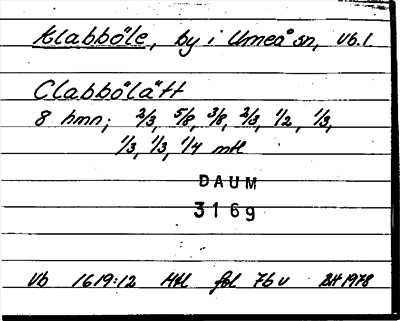 Klabböle, by i Umeå sn, Vb.l.
Clabbölätt
8 hmn; 2/3, 5/8, 3/8, 2/3, 1/2, 1/3,
1/3, 1/3, 1/4 mtl
DAUM
3169
Vb 1619:12 Mtl fol 76 v BH 1978